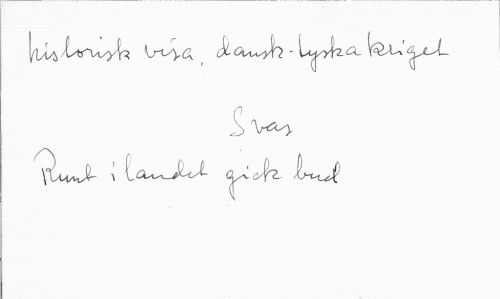 historisk visa, dansk-tyska kriget
Svas
Runt i landet gick bud